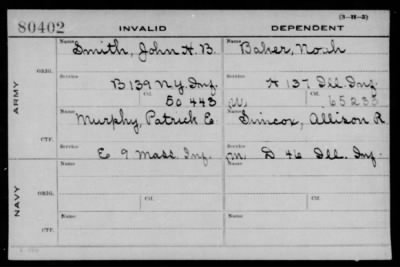 (3-H-3)
80402 INVALID DEPENDENT
Name Smith, John H. B. Name Baker, Noah
ARMY ORIG. Service B 139 N.Y. Inf. Service A 137 Ill. Inf.
Ctf. 50 443 (W) Ctf. 65235
CTF. Name Murphy, Patrick E Name Simcox, Allison R
Service E 9 Mass. Inf. Service (M) D 46 Ill. Inf.
NAVY ORIG. Name Name
Ctf. Ctf.
CTF. Name Name